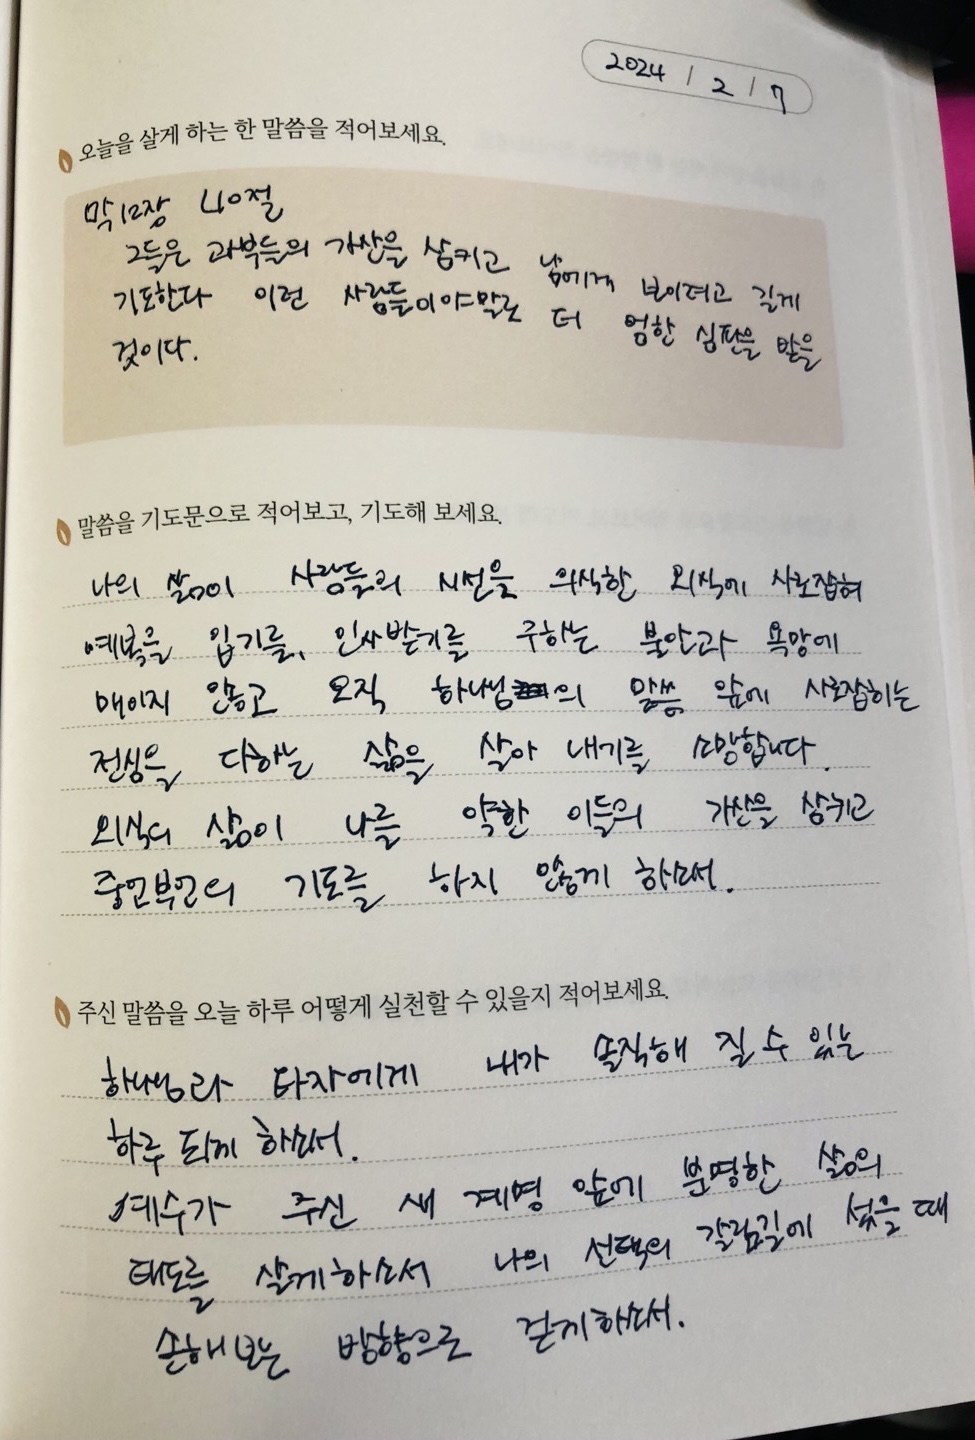 2024 / 2 / 7
오늘을 살게 하는 한 말씀을 적어보세요.
막12장 40절
그들은 과부들의 가산을 삼키고 남에게 보이려고 길게
기도한다 이런 사람들이야말로 더 엄한 심판을 받을
것이다.
말씀을 기도문으로 적어보고, 기도해 보세요.
나의 삶이 사람들의 시선을 의식한 외식에 사로잡혀
예복을 입기를, 인사받기를 구하는 불안과 욕망에
매이지 않고 오직 하나님의 말씀 앞에 사로잡히는
전심을 다하는 삶을 살아 내기를 소망합니다.
외식의 삶이 나를 약한 이들의 가산을 삼키고
중언부언의 기도를 하지 않게 하소서.
주신 말씀을 오늘 하루 어떻게 실천할 수 있을지 적어보세요.
하나님과 타자에게 내가 솔직해 질 수 있는
하루 되게 하소서.
예수가 주신 새 계명 앞에 분명한 삶의
태도를 살게하소서 나의 선택의 갈림길에 섰을 때
손해보는 방향으로 걷게하소서.